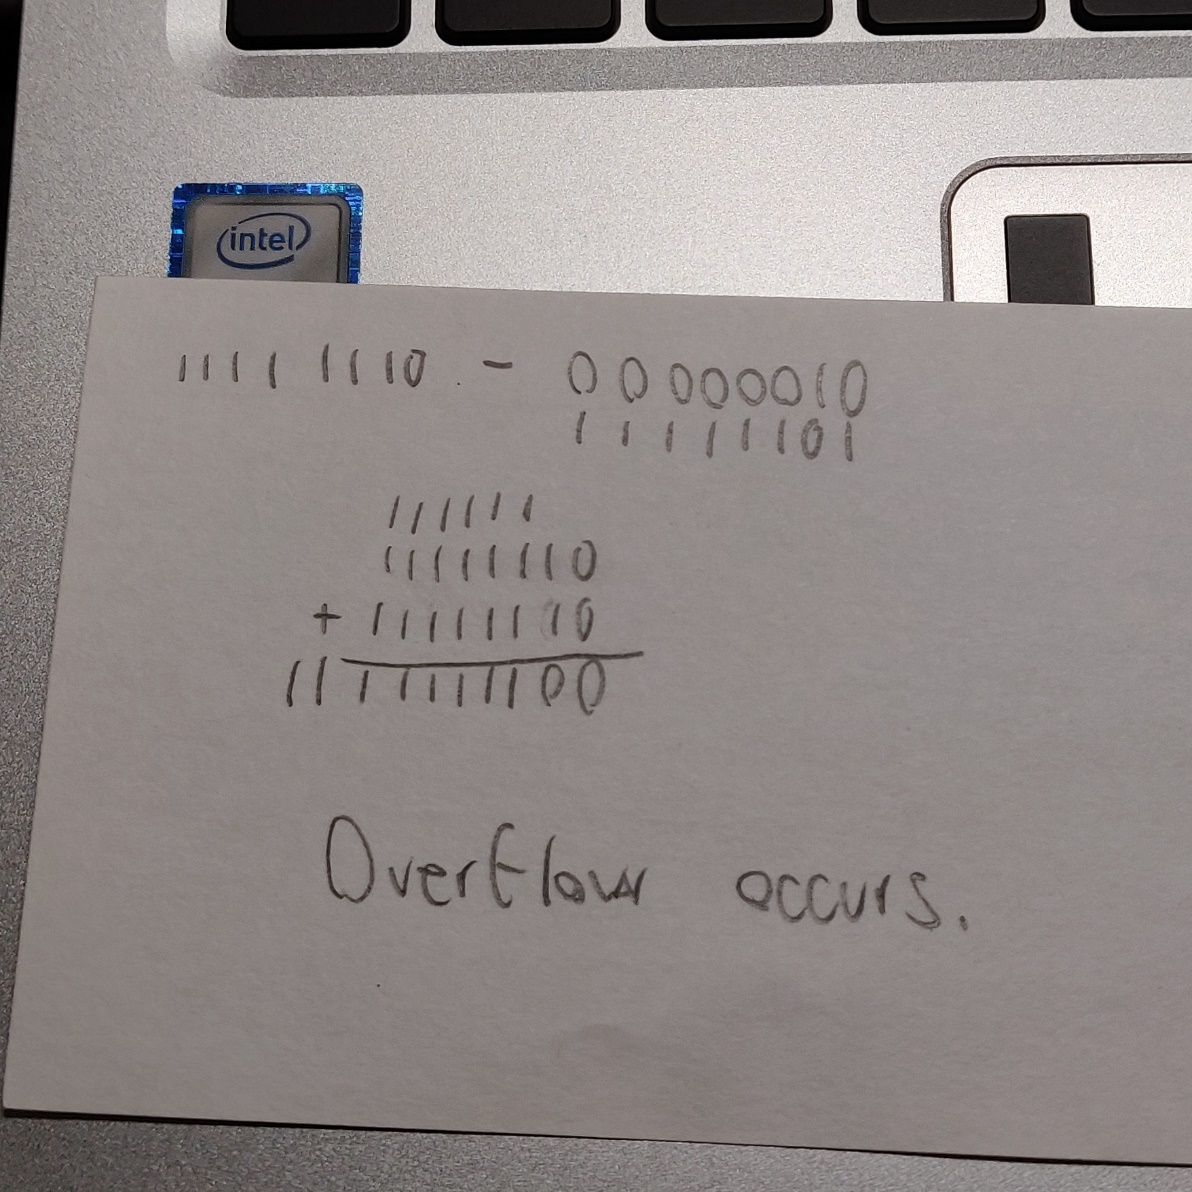 intel
11111110 - 00000010
11111101
111111
11111110
+ 11111110
1111111100
Overflow occurs.